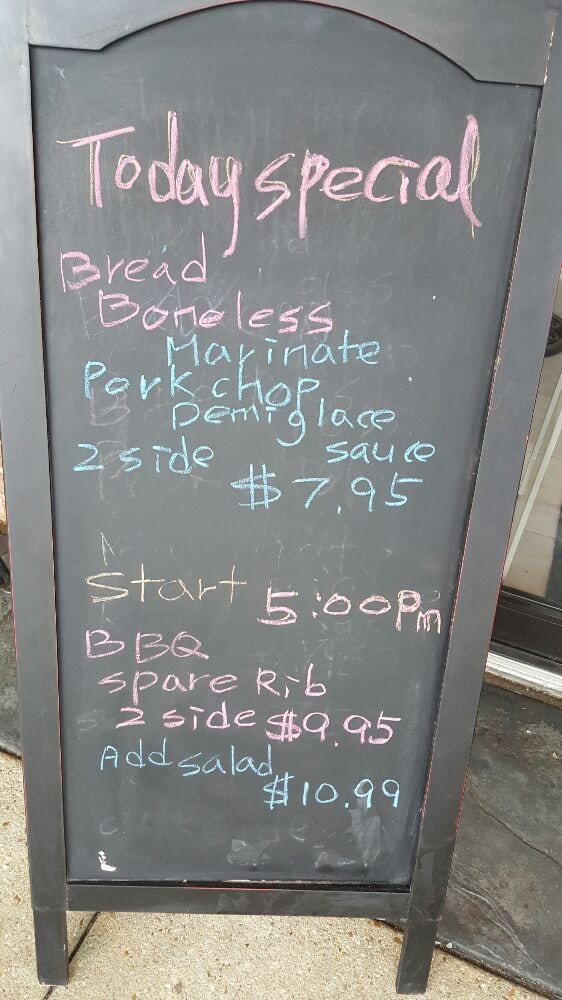 Today special
Bread
Boneless
Marinate
Pork chop
Demiglace
2 side sauce
$7.95
Start 5:00Pm
BBQ
spare Rib
2 side $9.95
Add salad
$10.99